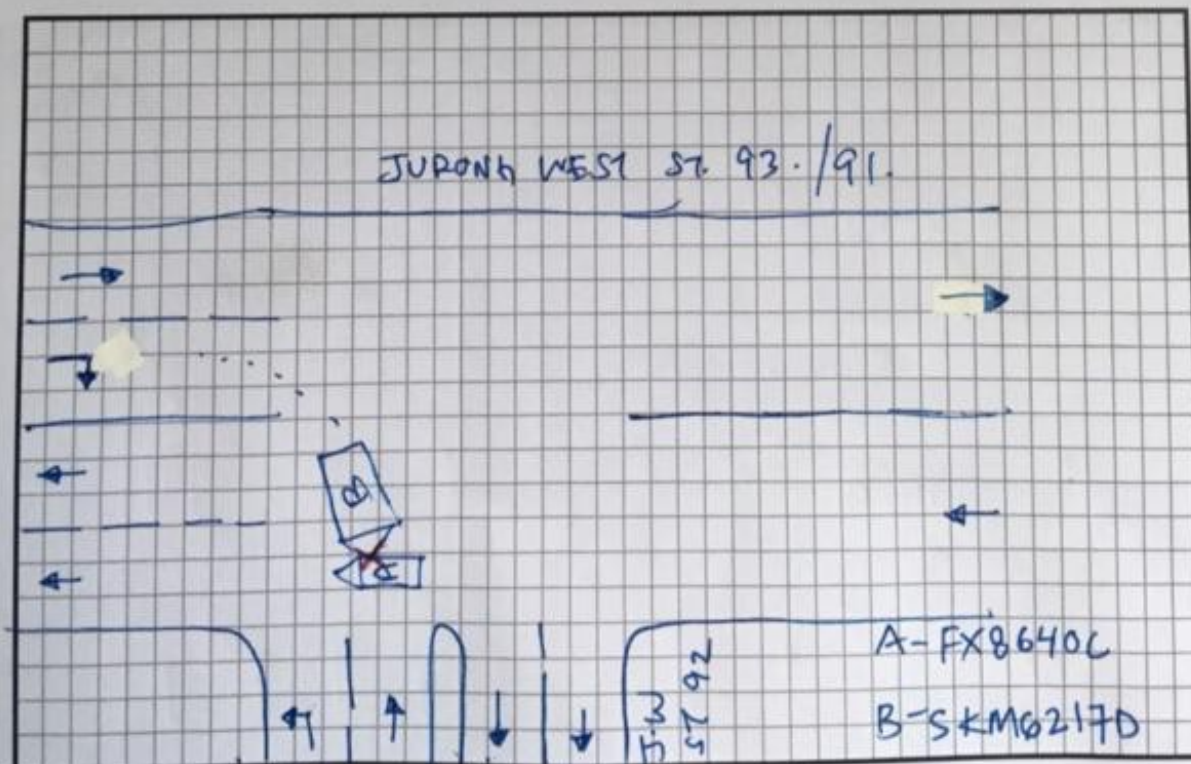 JURONG WEST ST. 93./91.
B
A
J-W
ST 92
A-FX8640C
B-SKM6217D